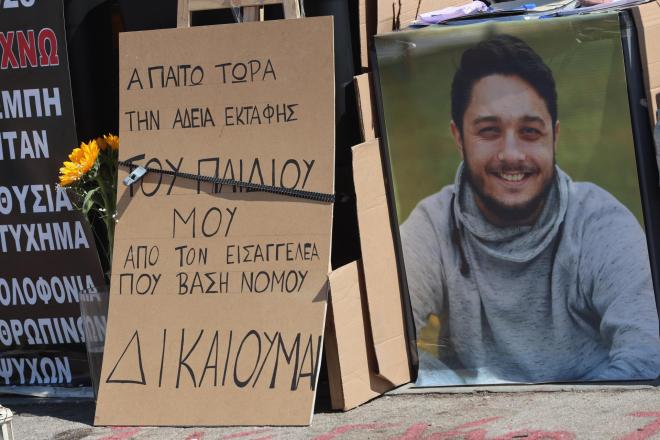 ΧΝΩ
ΜΠΗ
ΗΤΑΝ
ΘΥΣΙΑ
ΤΥΧΗΜΑ
ΟΛΟΦΟΝΙΑ
ΘΡΩΠΙΝΩΝ
ΨΥΧΩΝ
ΑΠΑΙΤΩ ΤΩΡΑ
ΤΗΝ ΑΔΕΙΑ ΕΚΤΑΦΗΣ
ΤΟΥ ΠΑΙΔΙΟΥ
ΜΟΥ
ΑΠΟ ΤΟΝ ΕΙΣΑΓΓΕΛΕΑ
ΠΟΥ ΒΑΣΗ ΝΟΜΟΥ
ΔΙΚΑΙΟΥΜΑΙ